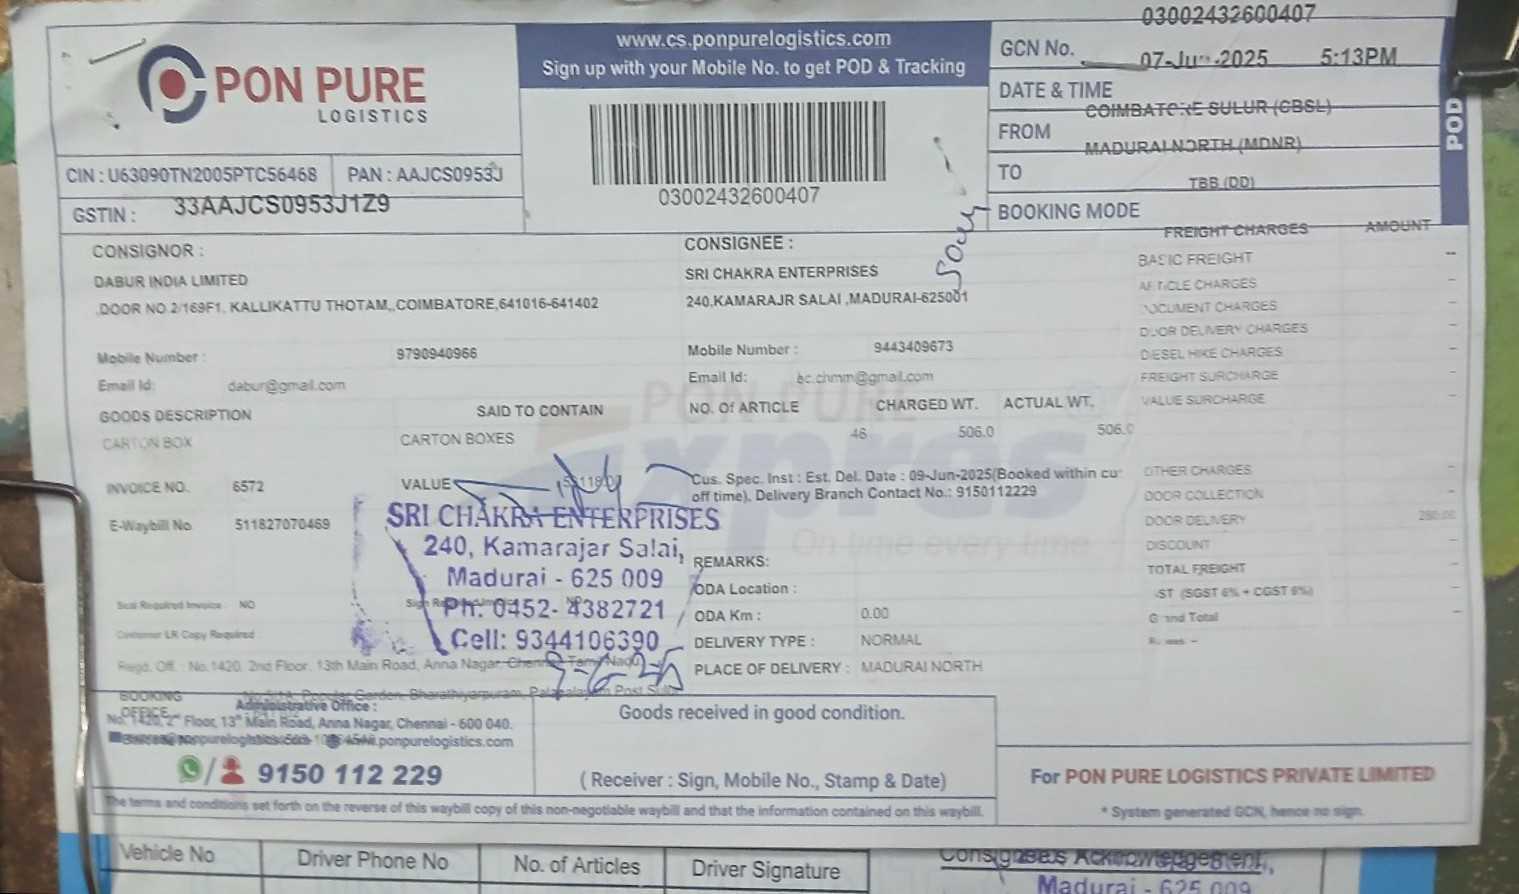 PON PURE
LOGISTICS
www.cs.ponpurelogistics.com
Sign up with your Mobile No. to get POD & Tracking
03002432600407
03002432600407
GCN No.
07-Jun-2025 5:13PM
DATE & TIME
COIMBATORE SULUR (CBSL)
FROM
MADURAI NORTH (MDNR)
TO
TBB (DD)
BOOKING MODE
POD
CIN : U63090TN2005PTC56468
PAN : AAJCS0953J
GSTIN : 33AAJCS0953J1Z9
CONSIGNOR :
DABUR INDIA LIMITED
DOOR NO.2/169F1, KALLIKATTU THOTAM,,COIMBATORE,641016-641402
Mobile Number : 9790940966
Email Id: dabur@gmail.com
CONSIGNEE :
SRI CHAKRA ENTERPRISES
240,KAMARAJR SALAI ,MADURAI-625001
Mobile Number : 9443409673
Email Id: bc.chmm@gmail.com
GOODS DESCRIPTION SAID TO CONTAIN NO. Of ARTICLE CHARGED WT. ACTUAL WT.
CARTON BOX CARTON BOXES 46 506.0 506.0
INVOICE NO. 6572 VALUE
E-Waybill No 511827070469
Cus. Spec. Inst : Est. Del. Date : 09-Jun-2025(Booked within cu
off time). Delivery Branch Contact No.: 9150112229
PON PURE
Xpres
On time every time
SRI CHAKRA ENTERPRISES
240, Kamarajar Salai,
Madurai - 625 009
Ph: 0452- 4382721
Cell: 9344106390
9-6-25
REMARKS:
ODA Location :
ODA Km : 0.00
DELIVERY TYPE : NORMAL
PLACE OF DELIVERY : MADURAI NORTH
Seal Required Invoice NO
Customer LR Copy Required
Regd. Off. : No.1420, 2nd Floor, 13th Main Road, Anna Nagar, Chennai Tamil Nadu
BOOKING
OFFICE
Popular Garden, Bharathiyarpuram, Post Sulur
Administrative Office :
No. 1420, 2nd Floor, 13th Main Road, Anna Nagar, Chennai - 600 040.
9150 112 229
Goods received in good condition.
( Receiver : Sign, Mobile No., Stamp & Date)
The terms and conditions set forth on the reverse of this waybill copy of this non-negotiable waybill and that the information contained on this waybill.
FREIGHT CHARGES AMOUNT
BASIC FREIGHT --
ARTICLE CHARGES -
DOCUMENT CHARGES -
DOOR DELIVERY CHARGES -
DIESEL HIKE CHARGES -
FREIGHT SURCHARGE -
VALUE SURCHARGE -
OTHER CHARGES -
DOOR COLLECTION -
DOOR DELIVERY 280.00
DISCOUNT -
TOTAL FREIGHT -
GST (SGST 6% + CGST 6%) -
Grand Total -
For PON PURE LOGISTICS PRIVATE LIMITED
* System generated GCN, hence no sign.
Vehicle No
Driver Phone No
No. of Articles
Driver Signature
Consignee's Acknowledgement
Madurai - 625 009